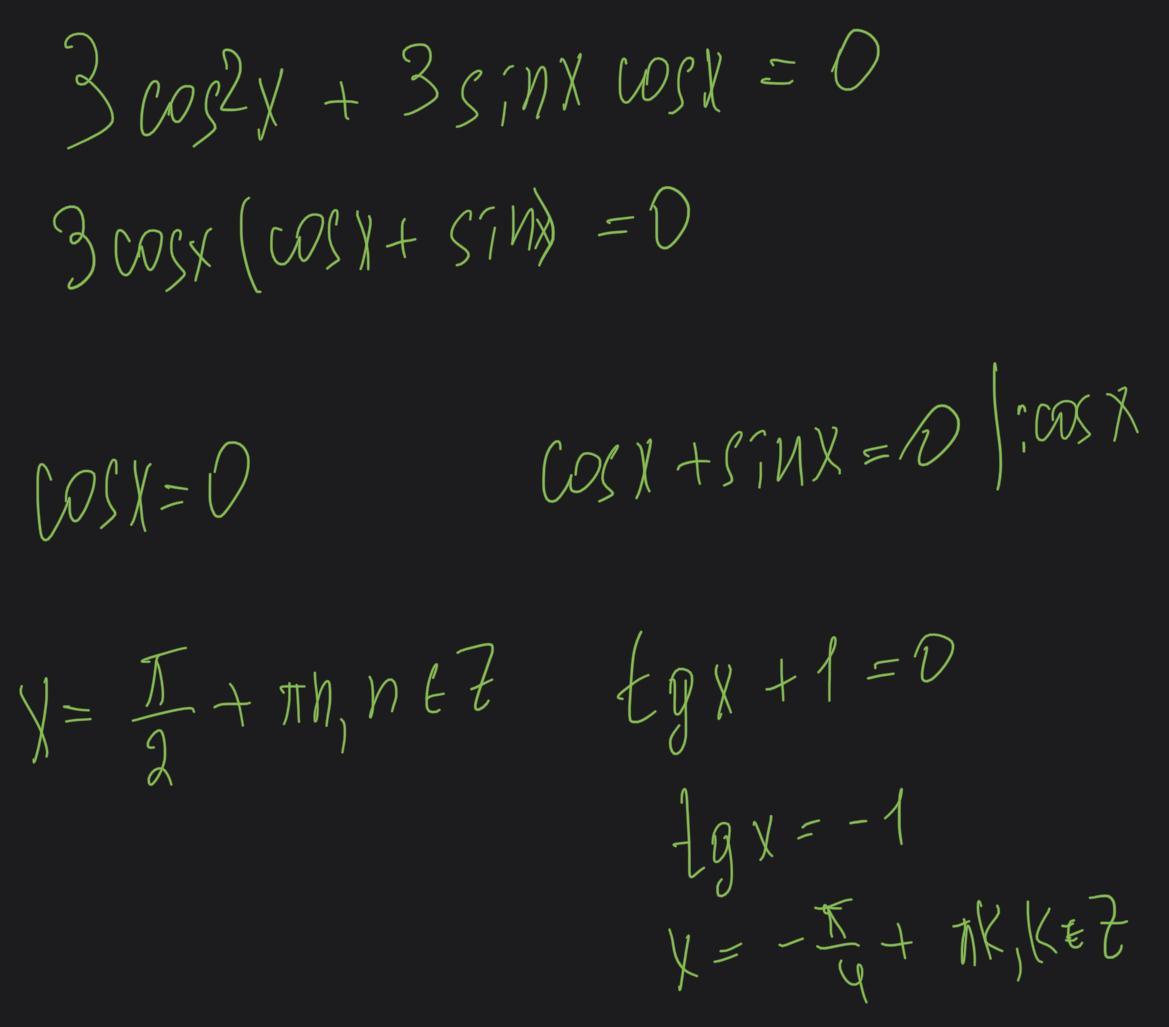 3cos²x + 3sinx cosx = 0
3cosx(cosx + sinx) = 0
cosx + sinx = 0 | :cosx
cosx = 0
x = π/2 + πn, n ∈ Z
tgx + 1 = 0
tgx = -1
x = -π/4 + πk, k ∈ Z